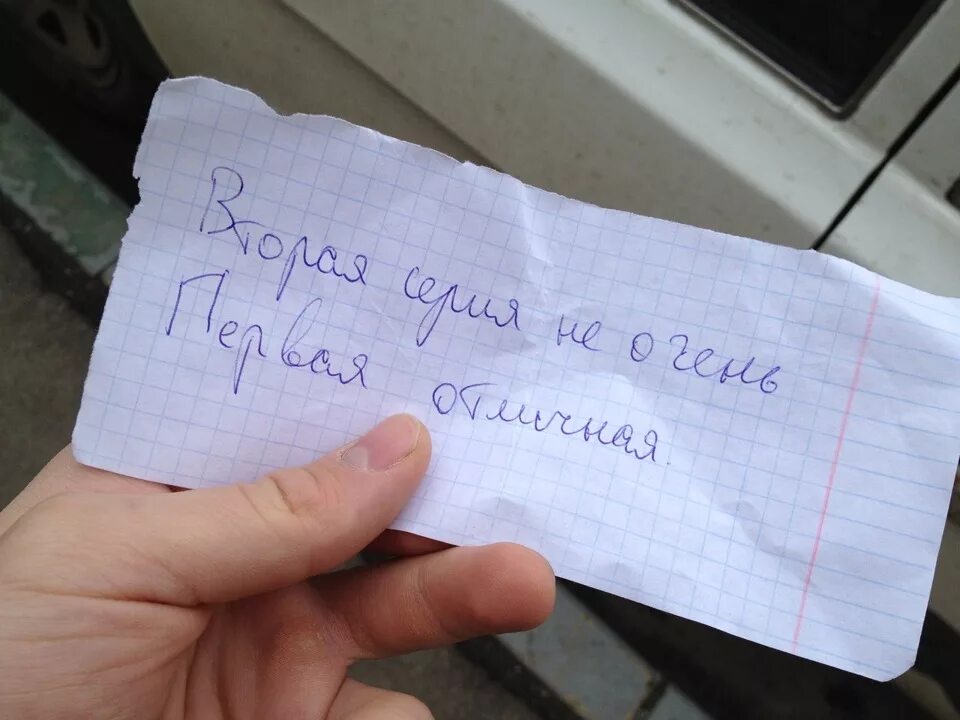 Вторая серия не очень
Первая отличная.